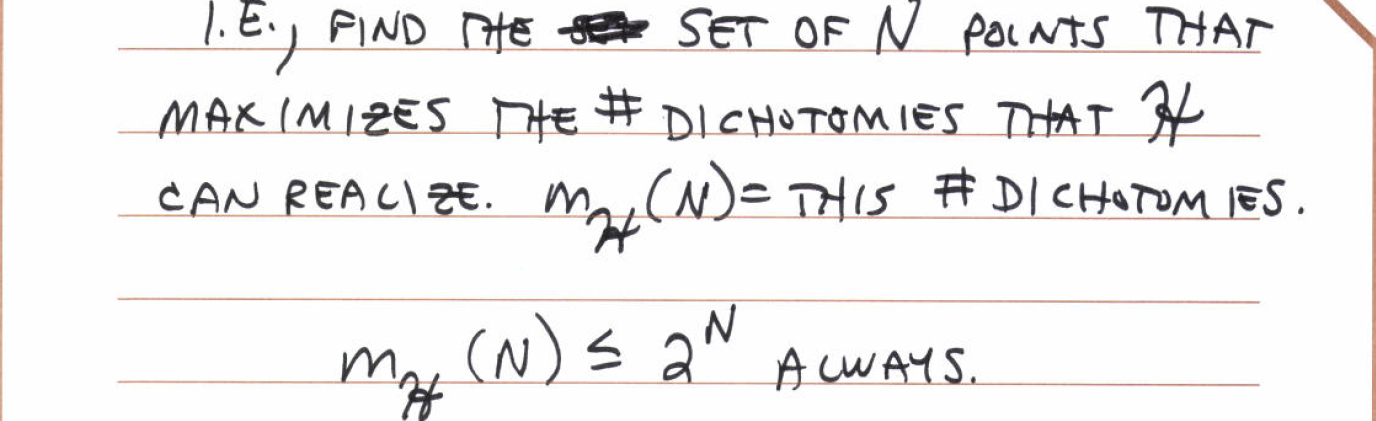 I.E., FIND THE SET OF N POINTS THAT
MAXIMIZES THE # DICHOTOMIES THAT ℋ
CAN REALIZE. m_ℋ(N) = THIS # DICHOTOMIES.
m_ℋ(N) ≤ 2^N ALWAYS.